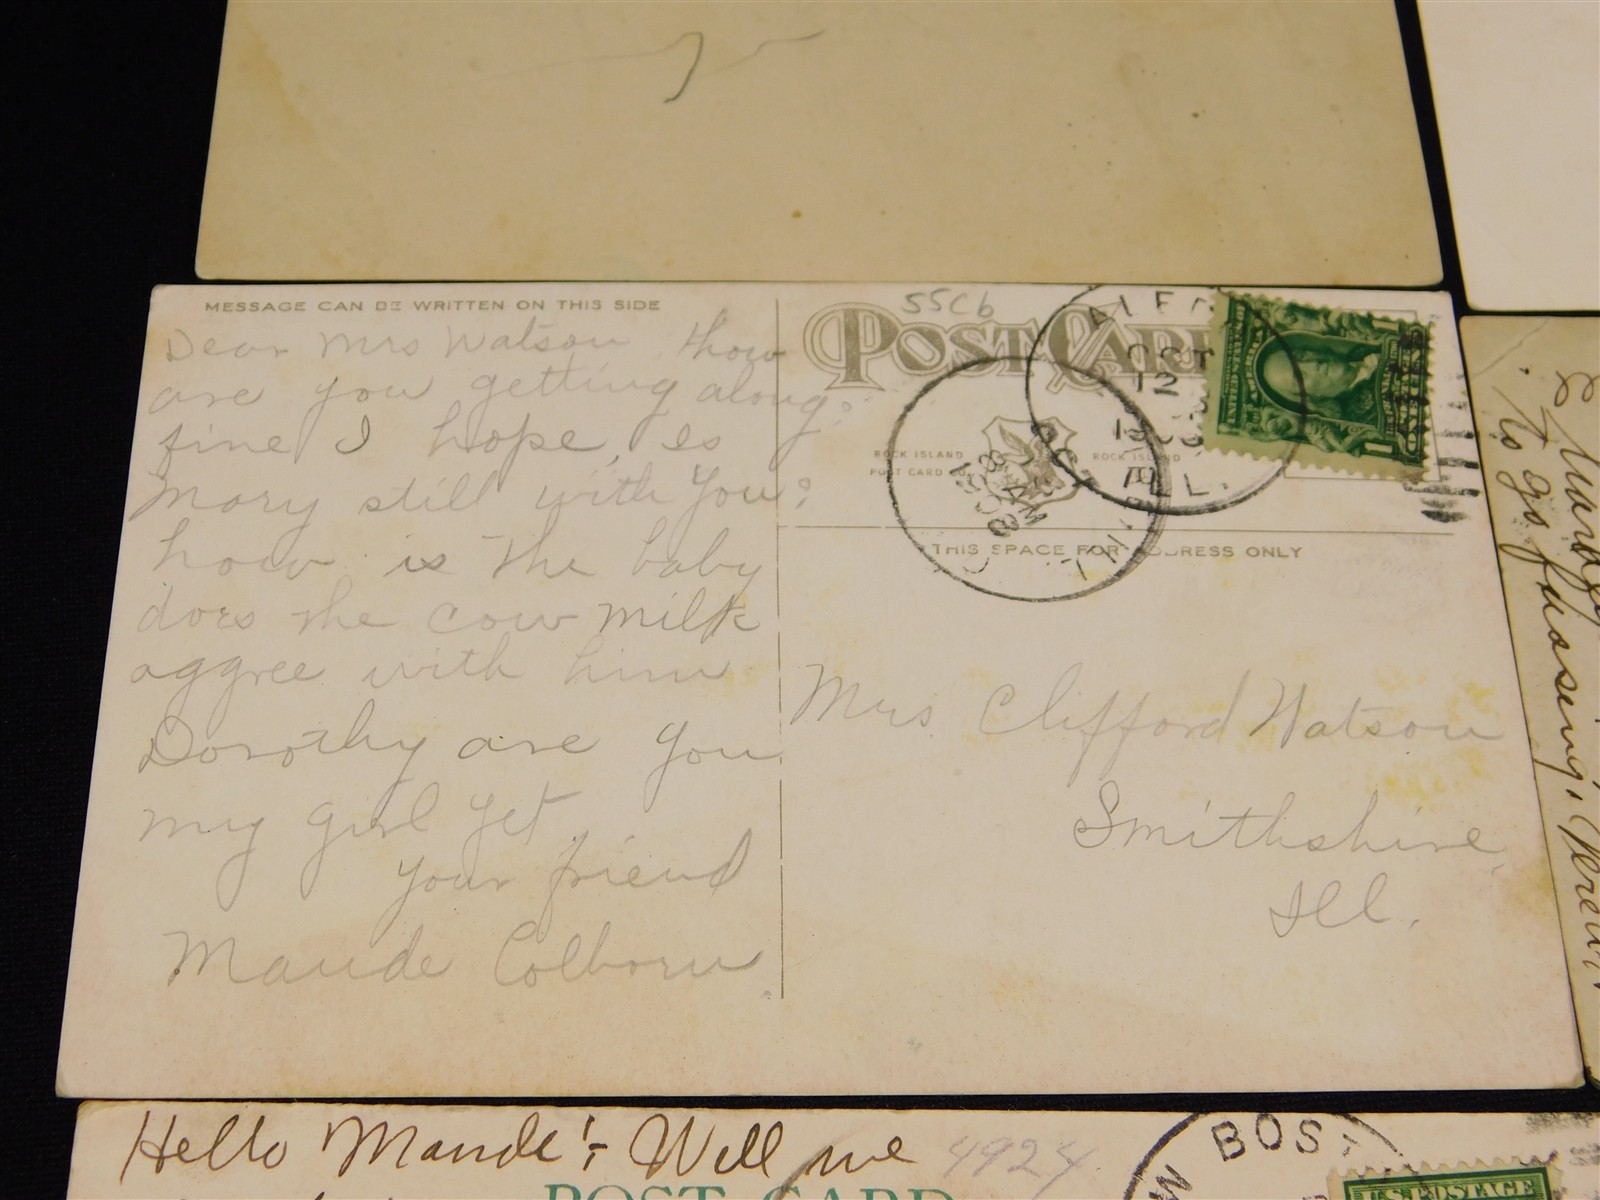 MESSAGE CAN BE WRITTEN ON THIS SIDE
Dear Mrs Watson, how
are you getting along?
fine I hope, is
Mary still with you?
how is the baby
does the cow milk
aggree with him
Dorothy are you
my girl yet
your friend
Maude Colborn
55cb
POST CARD
ALED
OCT
12
1908
ILL.
ROCK ISLAND
POST CARD CO.
ROCK ISLAND
OCT
8 AM
1908
THIS SPACE FOR ADDRESS ONLY
Mrs Clifford Watson
Smithshire,
Ill.
to go fussing,
Hello Maude! Well we
4924
POST CARD
BOS
U.S. POSTAGE